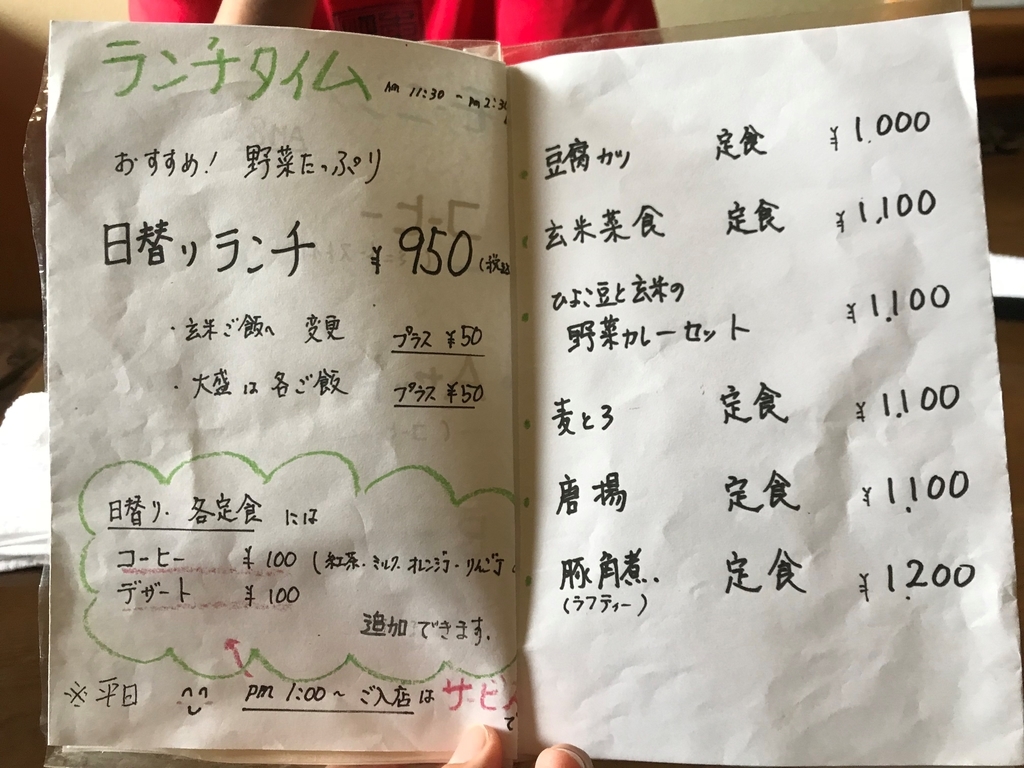 ランチタイム AM 11:30 ~ PM 2:30
おすすめ! 野菜たっぷり
日替りランチ ¥950 (税込
・玄米ご飯へ 変更 プラス ¥50
・大盛は 各ご飯 プラス ¥50
日替り・各定食 には
コーヒー ¥100 (紅茶・ミルク・オレンジJ・りんごJ
デザート ¥100
追加できます.
※平日 pm 1:00~ ご入店は サービス
で
豆腐カツ 定食 ¥1.000
玄米菜食 定食 ¥1,100
ひよこ豆と玄米の
野菜カレーセット ¥1.100
麦とろ 定食 ¥1.100
唐揚 定食 ¥1.100
豚角煮. 定食 ¥1.200
(ラフティー)